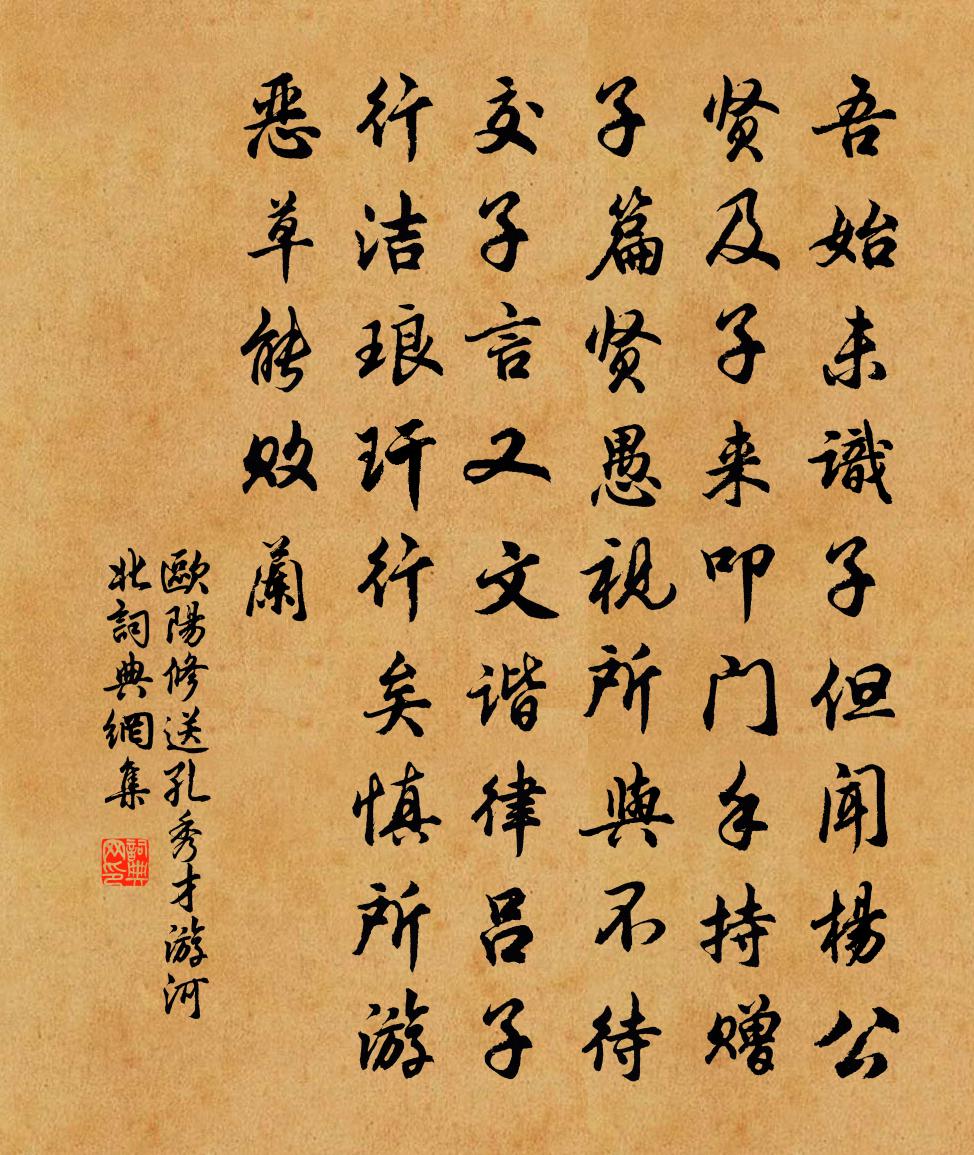 吾始未識子但闻楊公
贤及子来叩门手持赠
子篇贤愚視所與不待
交子言又文谐律吕子
行洁琅玕行矣慎所游
恶草能败蘭
歐陽修送孔秀才游河
北詞典網集
詞典网印